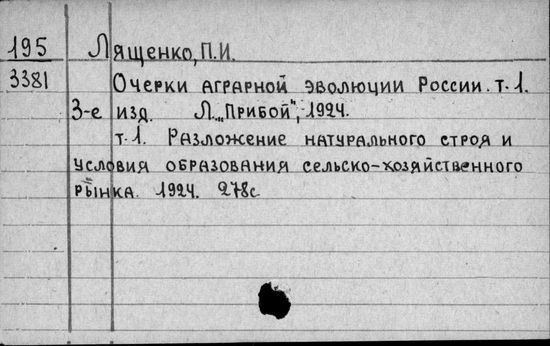 195 Лященко, П.И.
3381 Очерки аграрной эволюции России. т.1.
3-е изд. Л. „Прибой", 1924.
т.1. Разложение натурального строя и
условия образования сельско-хозяйственного
рынка. 1924. 278с.